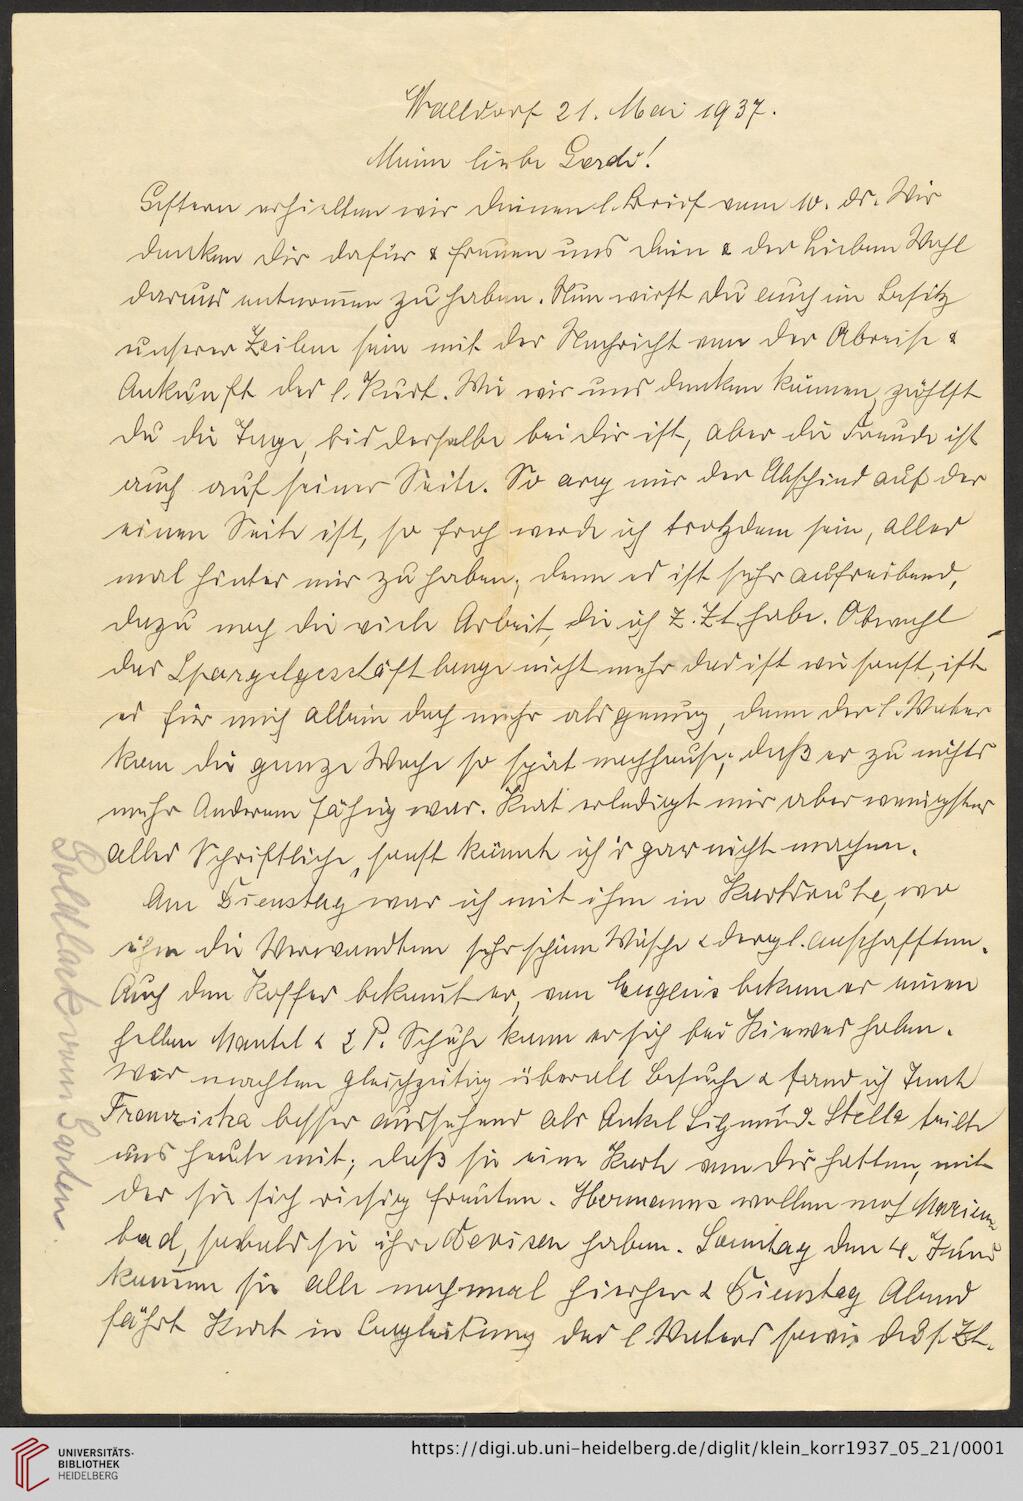 Walldorf 21. Mai 1937.
Meine liebe Gerdi!
Gestern erhielten wir Deinen l. Brief vom 10. ds. Wir
danken Dir dafür & freuen uns Dein & der Lieben Wohl
daraus entnom̅en zu haben. Nun wirst Du auch im Besitz
unserer Zeilen sein mit der Nachricht von der Abreise &
Ankunft des l. Kurt. Wie wir uns denken können, zählst
Du die Tage, bis derselbe bei Dir ist, aber die Freude ist
auch auf seiner Seite. So arg mir der Abschied auf der
einen Seite ist, so froh werde ich trotzdem sein, alles
mal hinter mir zu haben, denn es ist sehr aufreibend,
dazu noch die viele Arbeit, die ich z. Zt. habe. Obwohl
das Spargelgeschäft lange nicht mehr das ist wie sonst, ist
es für mich allein doch mehr als genug, denn der l. Vater
kam die ganze Woche so spät nachhause, daß er zu nichts
mehr Anderem fähig war. Kurt erledigt mir aber wenigstens
alles Schriftliche, sonst könnte ich's gar nicht machen.
Am Dienstag war ich mit ihm in Karlsruhe, wo
ihm die Verwandten sehr schöne Wäsche & dergl. anschafften.
Auch den Koffer bekommt er, von Eugens bekam er einen
hellen Mantel & 2 P. Schuhe kann er sich bei holen.
Wir machten gleichzeitig überall Besuche & fand ich Tante
Franziska besser aussehend als Onkel Sigmund. Stella teilte
uns heute mit, daß sie eine Karte von Dir hatten, mit
der sie sich riesig freuten. Hermanns wollen nach Marien-
bad, sobald sie ihre Devisen haben. Sonntag den
kom̅en sie alle nochmal hierher & Dienstag Abend
fährt Kurt in Begleitung des l. Vaters sowie des
Goldlack vom Garten.
UNIVERSITÄTS-
BIBLIOTHEK
HEIDELBERG
https://digi.ub.uni-heidelberg.de/diglit/klein_korr1937_05_21/0001